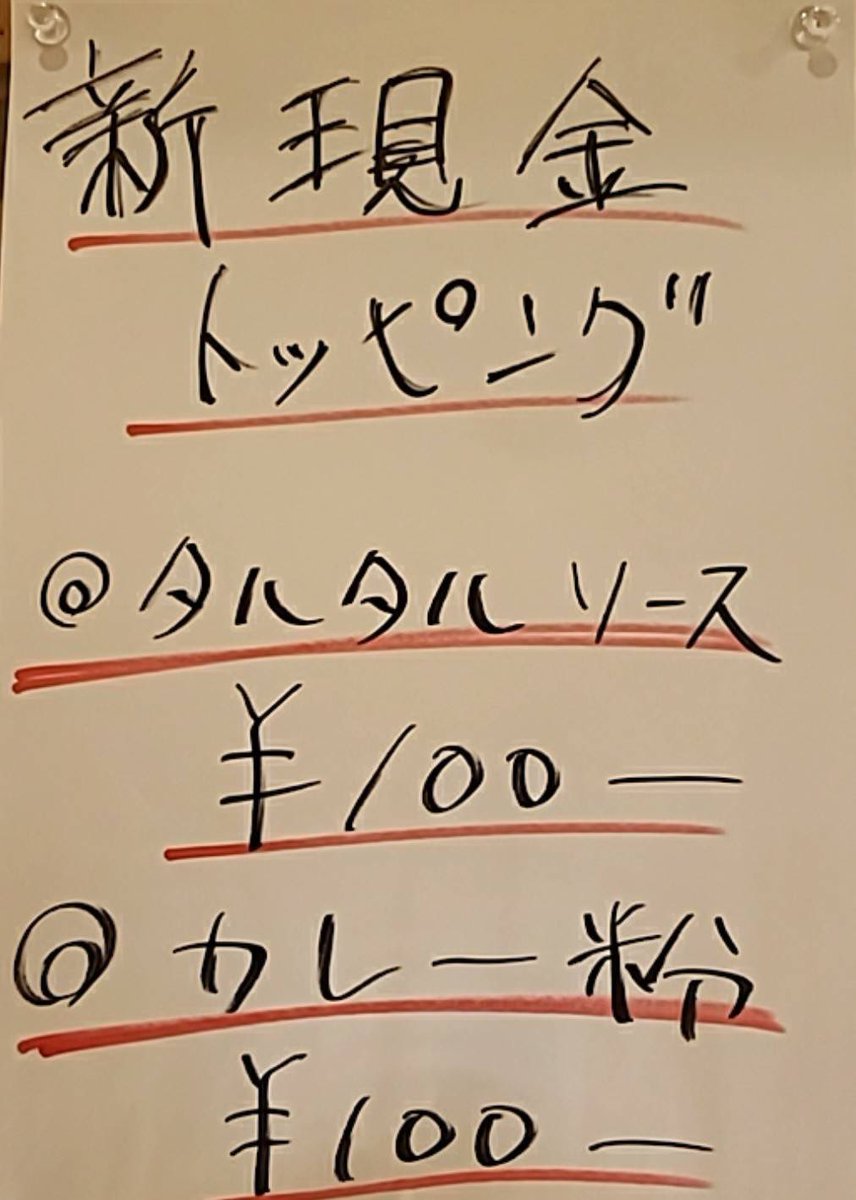 新現金
トッピング
◎タルタルソース
¥100ー
◎カレー粉
¥100ー